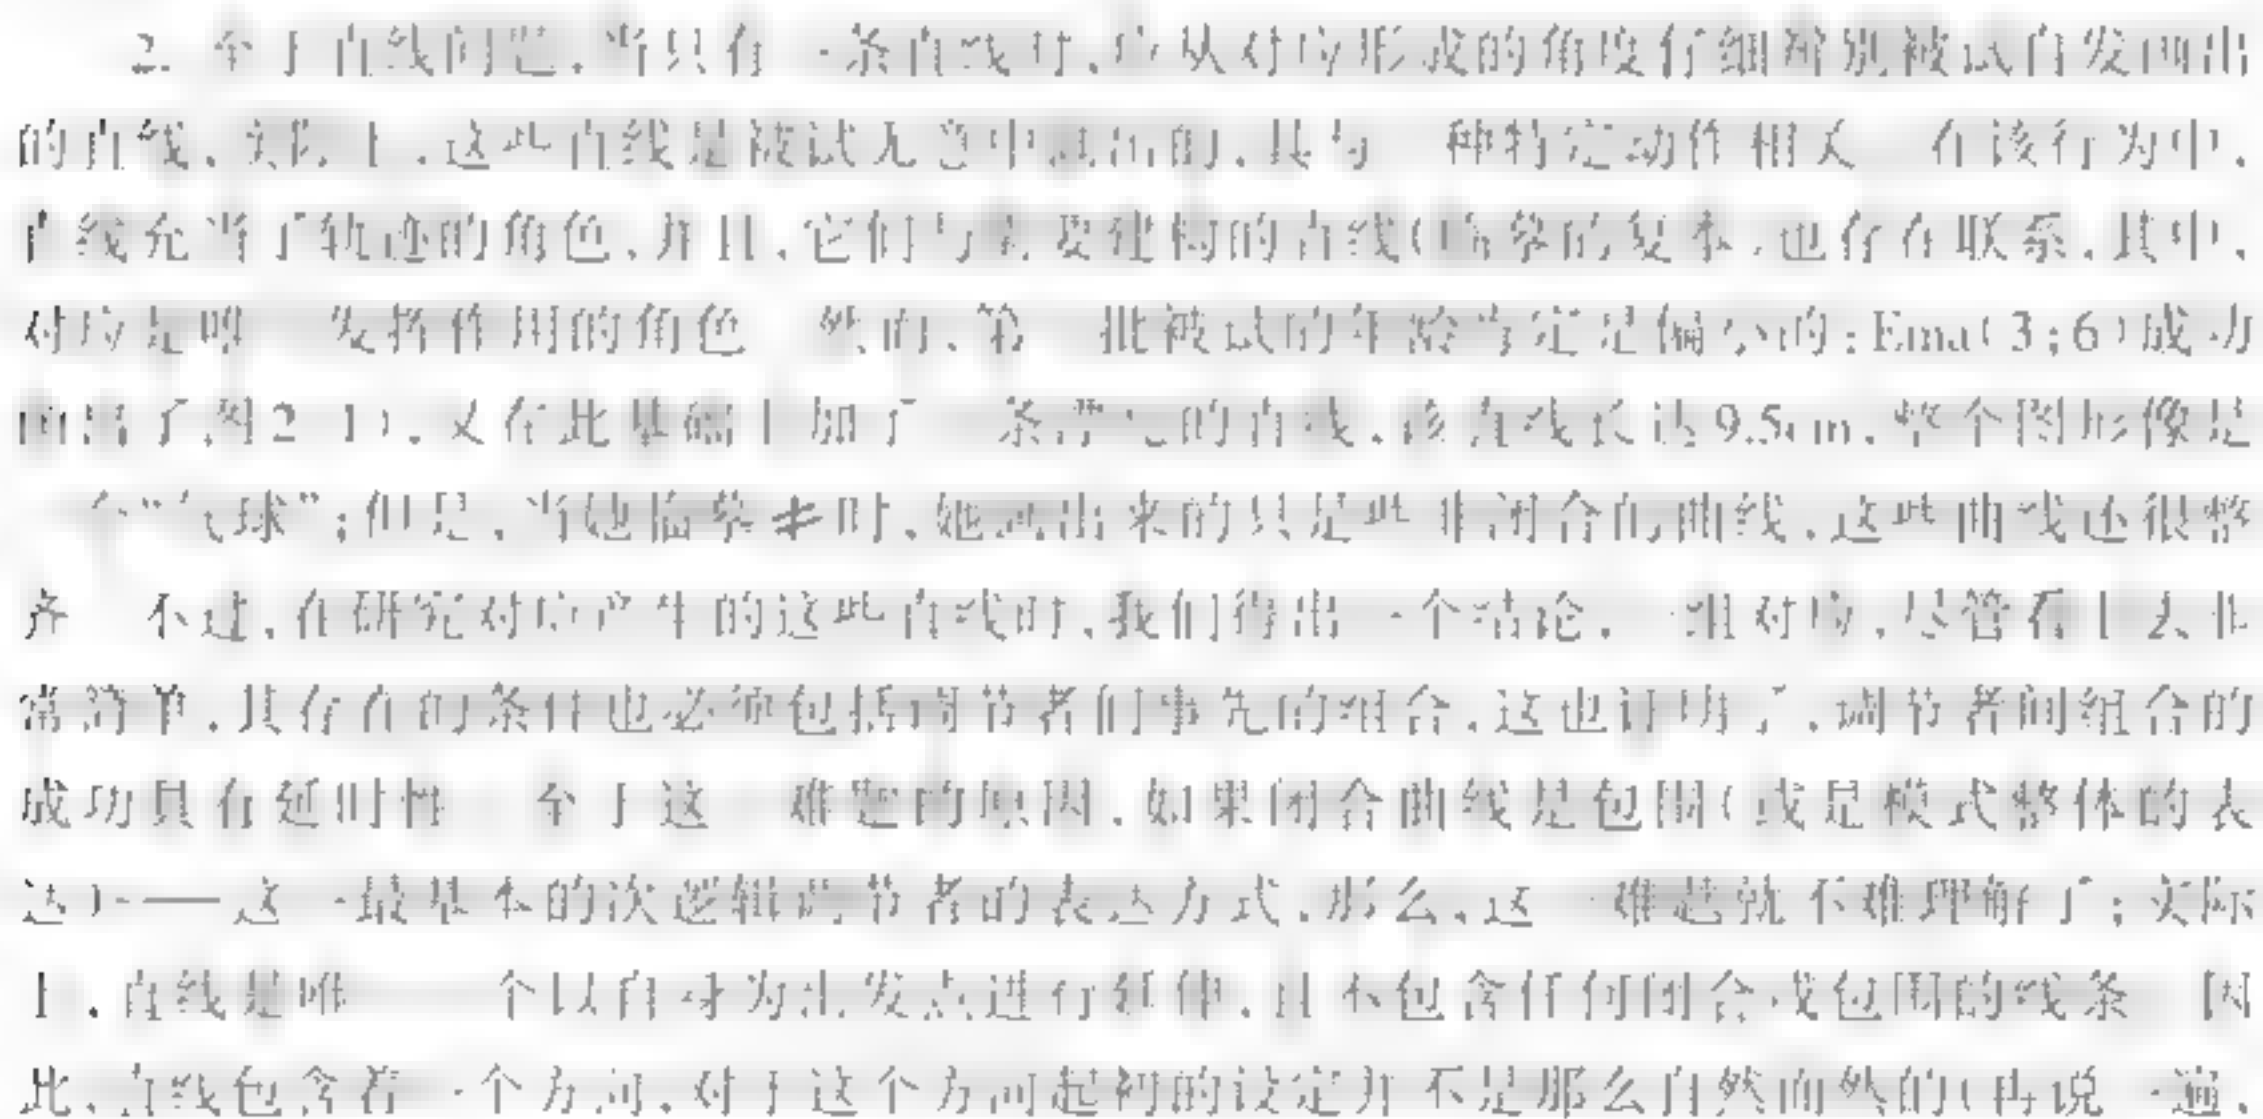 2. 至于直线问题,当只有一条直线时,应从对应形成的角度仔细辨别被试自发画出
的直线。实际上,这些直线是被试无意中画出的,其与一种特定动作相关。在该行为中,
直线充当了轨迹的角色,并且,它们与需要建构的直线(临摹的复本)也存在联系,其中,
对应是唯一发挥作用的角色。然而,第一批被试的年龄肯定是偏小的:Ema(3;6)成功
画出了图2-1),又在此基础上加了一条潦草的直线,该直线长达9.5cm,整个图形像是
一个“气球”;但是,当她临摹≠时,她画出来的只是些非闭合的曲线,这些曲线还很整
齐。不过,在研究对应产生的这些直线时,我们得出一个结论,一组对应,尽管看上去非
常简单,其存在的条件也必须包括调节者们事先的组合,这也证明了,调节者间组合的
成功具有延时性。至于这一难题的原因,如果闭合曲线是包围(或是模式整体的表
达)——这一最基本的次逻辑调节者的表达方式,那么,这一难题就不难理解了;实际
上,直线是唯一一个以自身为出发点进行延伸,且不包含任何闭合或包围的线条。因
此,直线包含着一个方向,对于这个方向起初的设定并不是那么自然而然的(再说一遍,